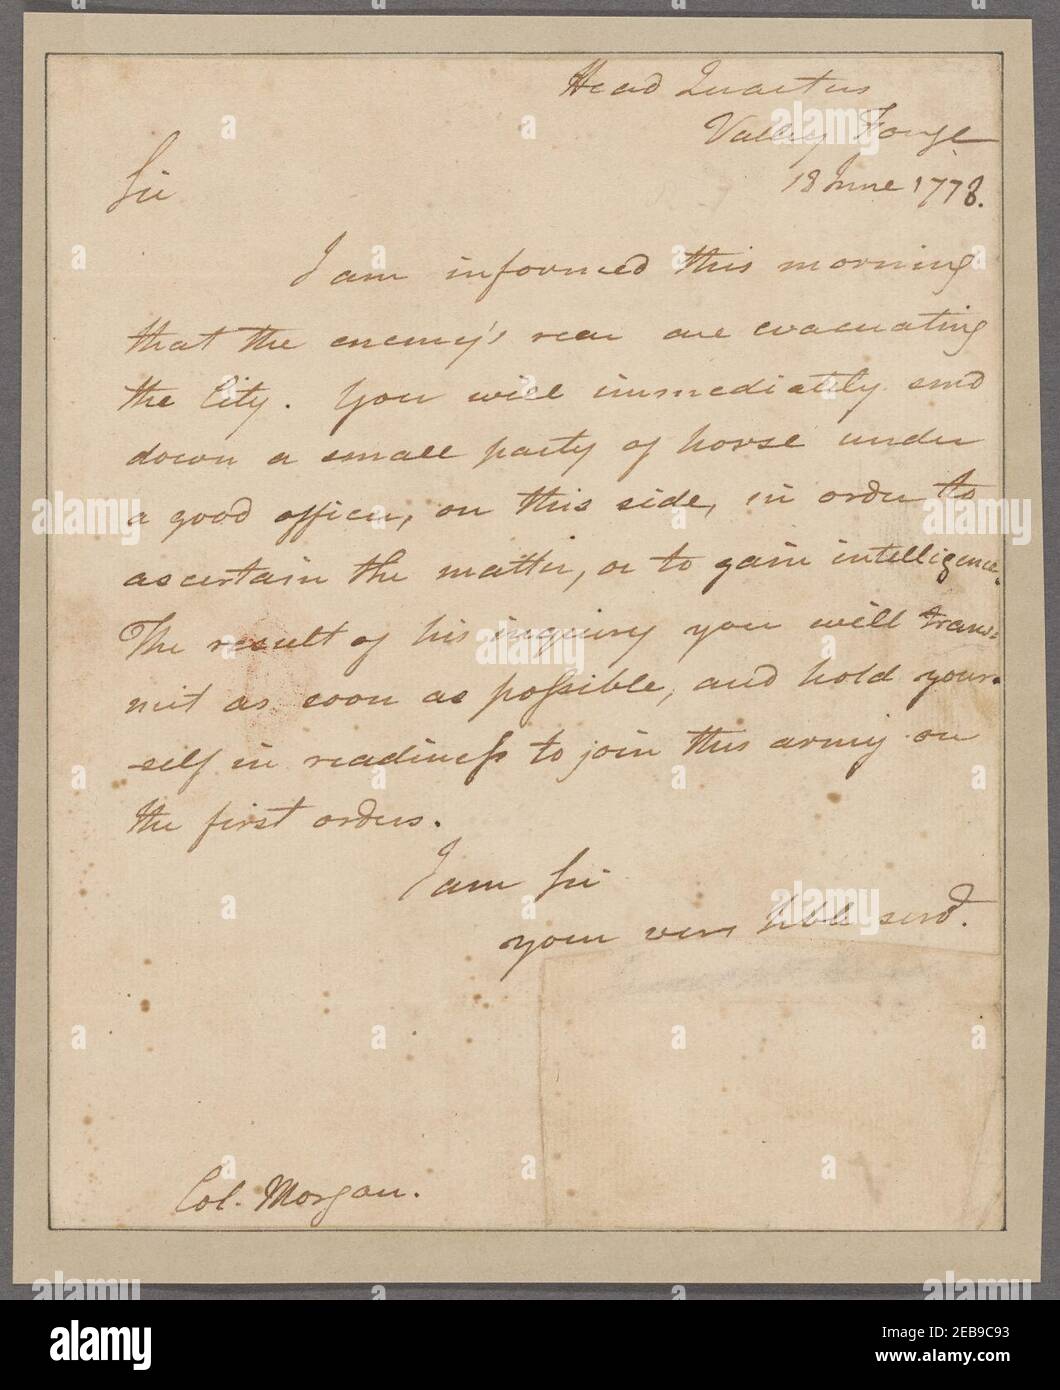 Head Quarters
Valley Forge
18 June 1778.
Sir
I am informed this morning
that the enemy's rear are evacuating
the City. You will immediately send
down a small party of horse under
a good officer, on this side, in order to
ascertain the matter, or to gain intelligence.
The result of his inquiry you will trans=
mit as soon as poſsible, and hold your-
self in readineſs to join this army on
the first orders.
I am Sir
your very hble servt.
Col. Morgan.
alamy
Image ID: 2EB9C93
www.alamy.com